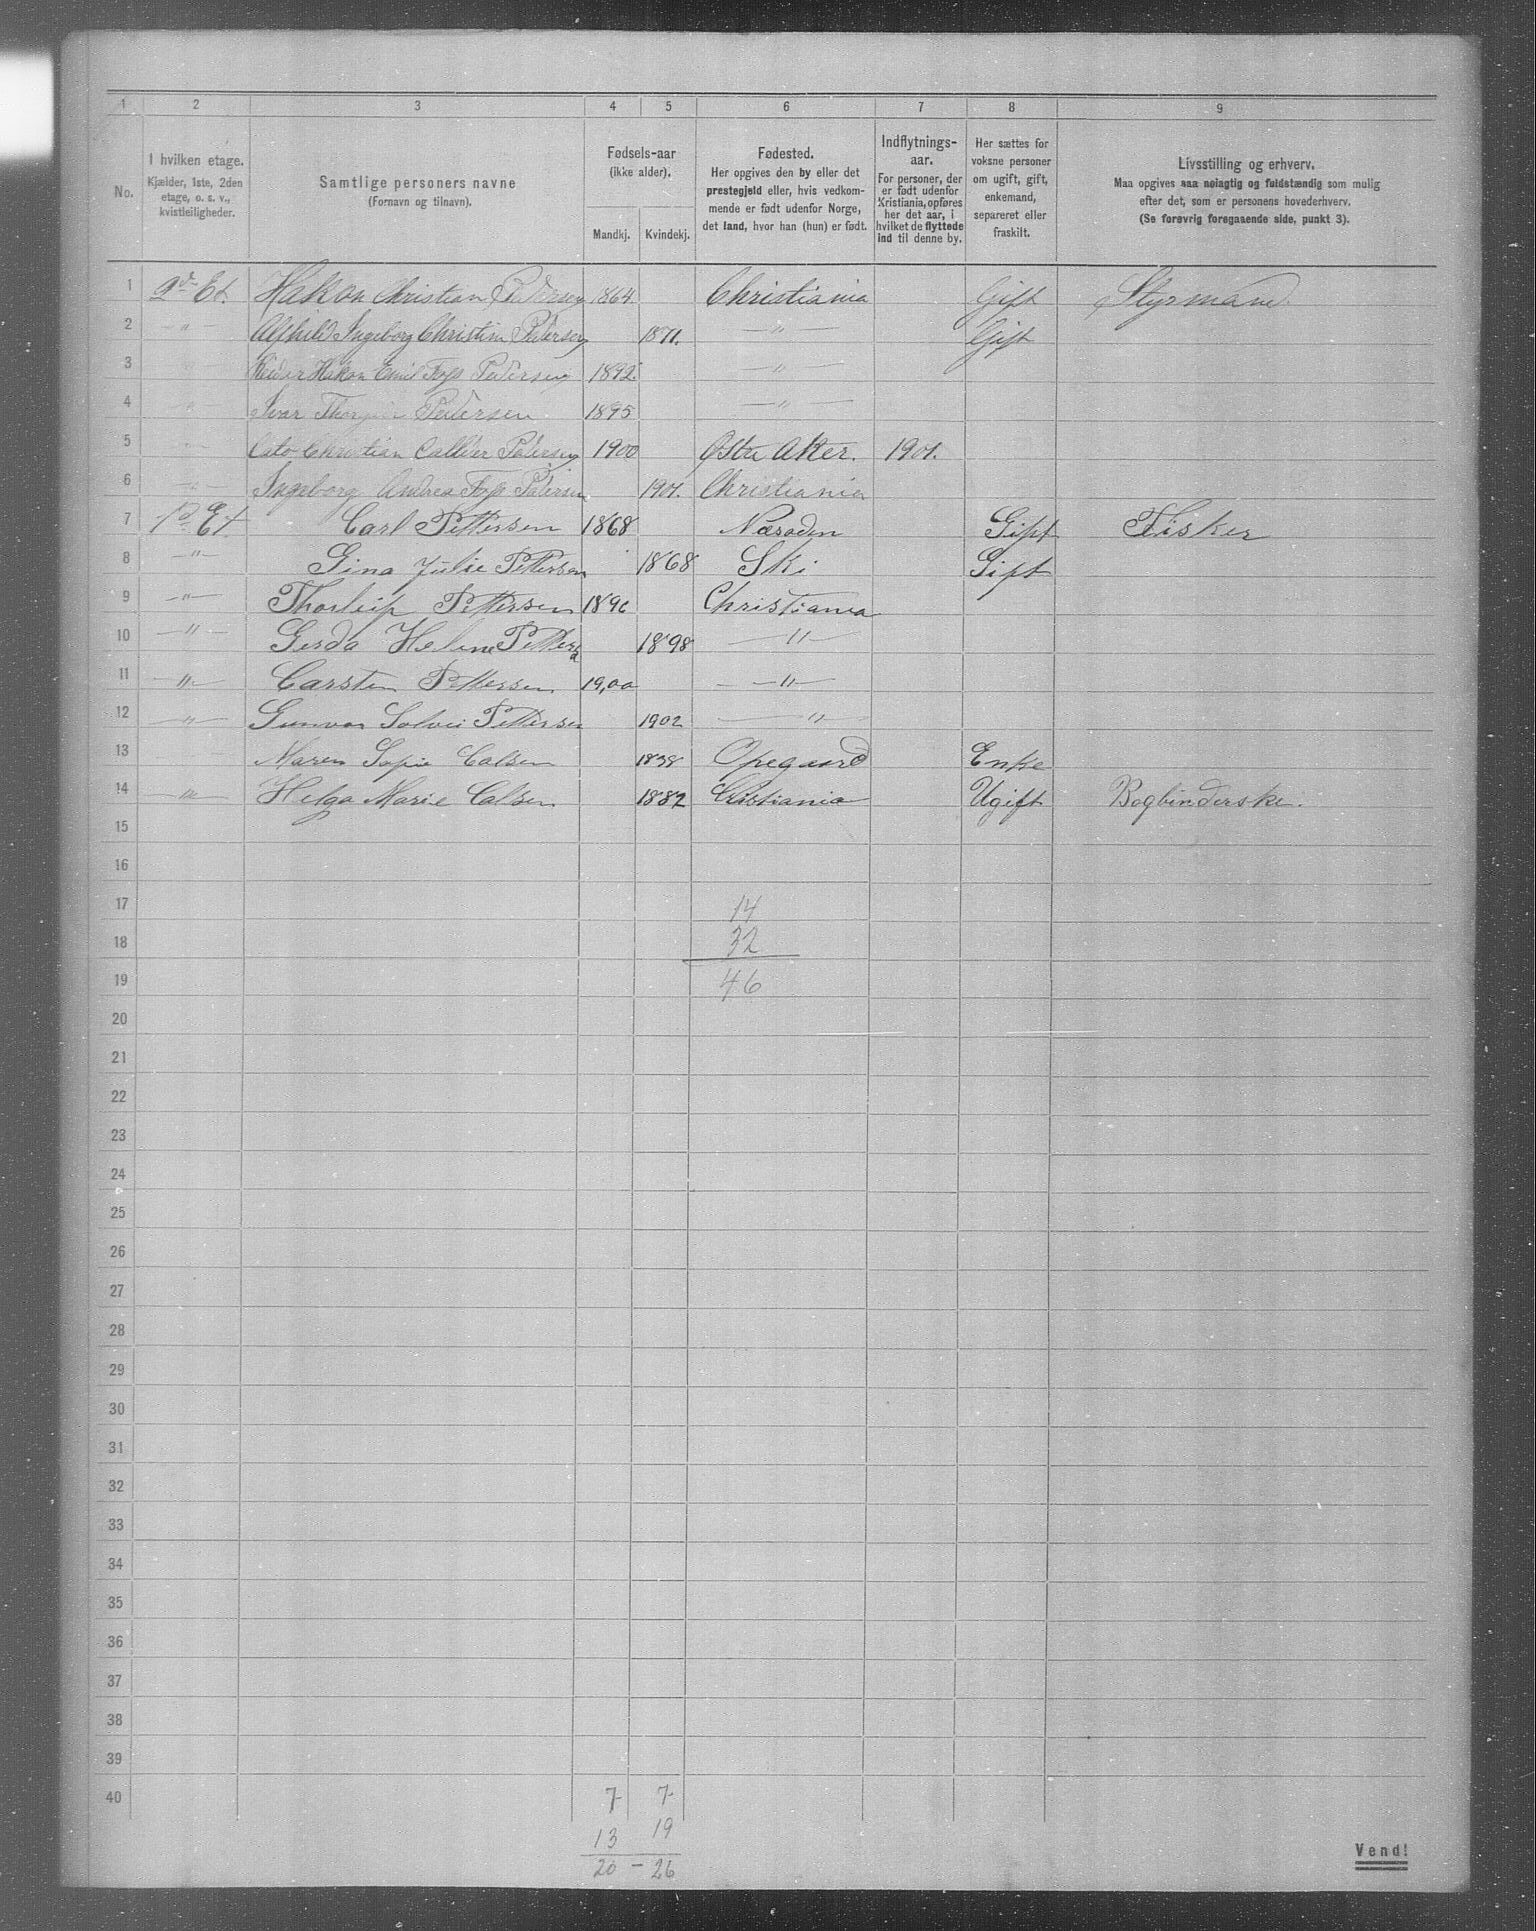 1 2 3 4 5 6 7 8 9
No.
I hvilken etage.
Kjælder, 1ste, 2den
etage, o. s. v.,
kvistleiligheder.
Samtlige personers navne
(Fornavn og tilnavn).
Fødsels-aar
(ikke alder).
Mandkj. Kvindekj.
Fødested.
Her opgives den by eller det
prestegjeld eller, hvis vedkom-
mende er født udenfor Norge,
det land, hvor han (hun) er født.
Indflytnings-
aar.
For personer, der
er født udenfor
Kristiania, opføres
her det aar, i
hvilket de flyttede
ind til denne by.
Her sættes for
voksne personer
om ugift, gift,
enkemand,
separeret eller
fraskilt.
Livsstilling og erhverv.
Maa opgives saa nøiagtig og fuldstændig som mulig
efter det, som er personens hovederhverv.
(Se forøvrig foregaaende side, punkt 3).
1 2den Et. Hakon Christian Pedersen 1864 Christiania Gift Styrmand.
2 " Alfhild Ingeborg Christine Pedersen 1871. " Gift
3 Hakon Emil Pedersen 1892. "
4 " Ivar Pedersen 1895 "
5 " Cato Christian Pedersen 1900 Østre Aker. 1901.
6 " Ingeborg Andrea Pedersen 1901. Christiania
7 Et. Carl Pettersen 1868 Næsodden Gift Fisker
8 " Gina Julie Pettersen 1868 Ski Gift
9 " Thorleif Pettersen 1896 Christiania
10 " Gerda Helene Petters 1898 "
11 " Carsten Pettersen 19,00 "
12 " Gunvor Solvei Pettersen 1902 "
13 Maren Sofie Calsen 1838 Opegaard Enke
14 " Helga Marie Calsen 1882 Cristiania Ugift Bogbinderske.
15
16
17 14
18 32
19 46
20
21
22
23
24
25
26
27
28
29
30
31
32
33
34
35
36
37
38
39
40 7 7
13 19
20 - 26
Vend!